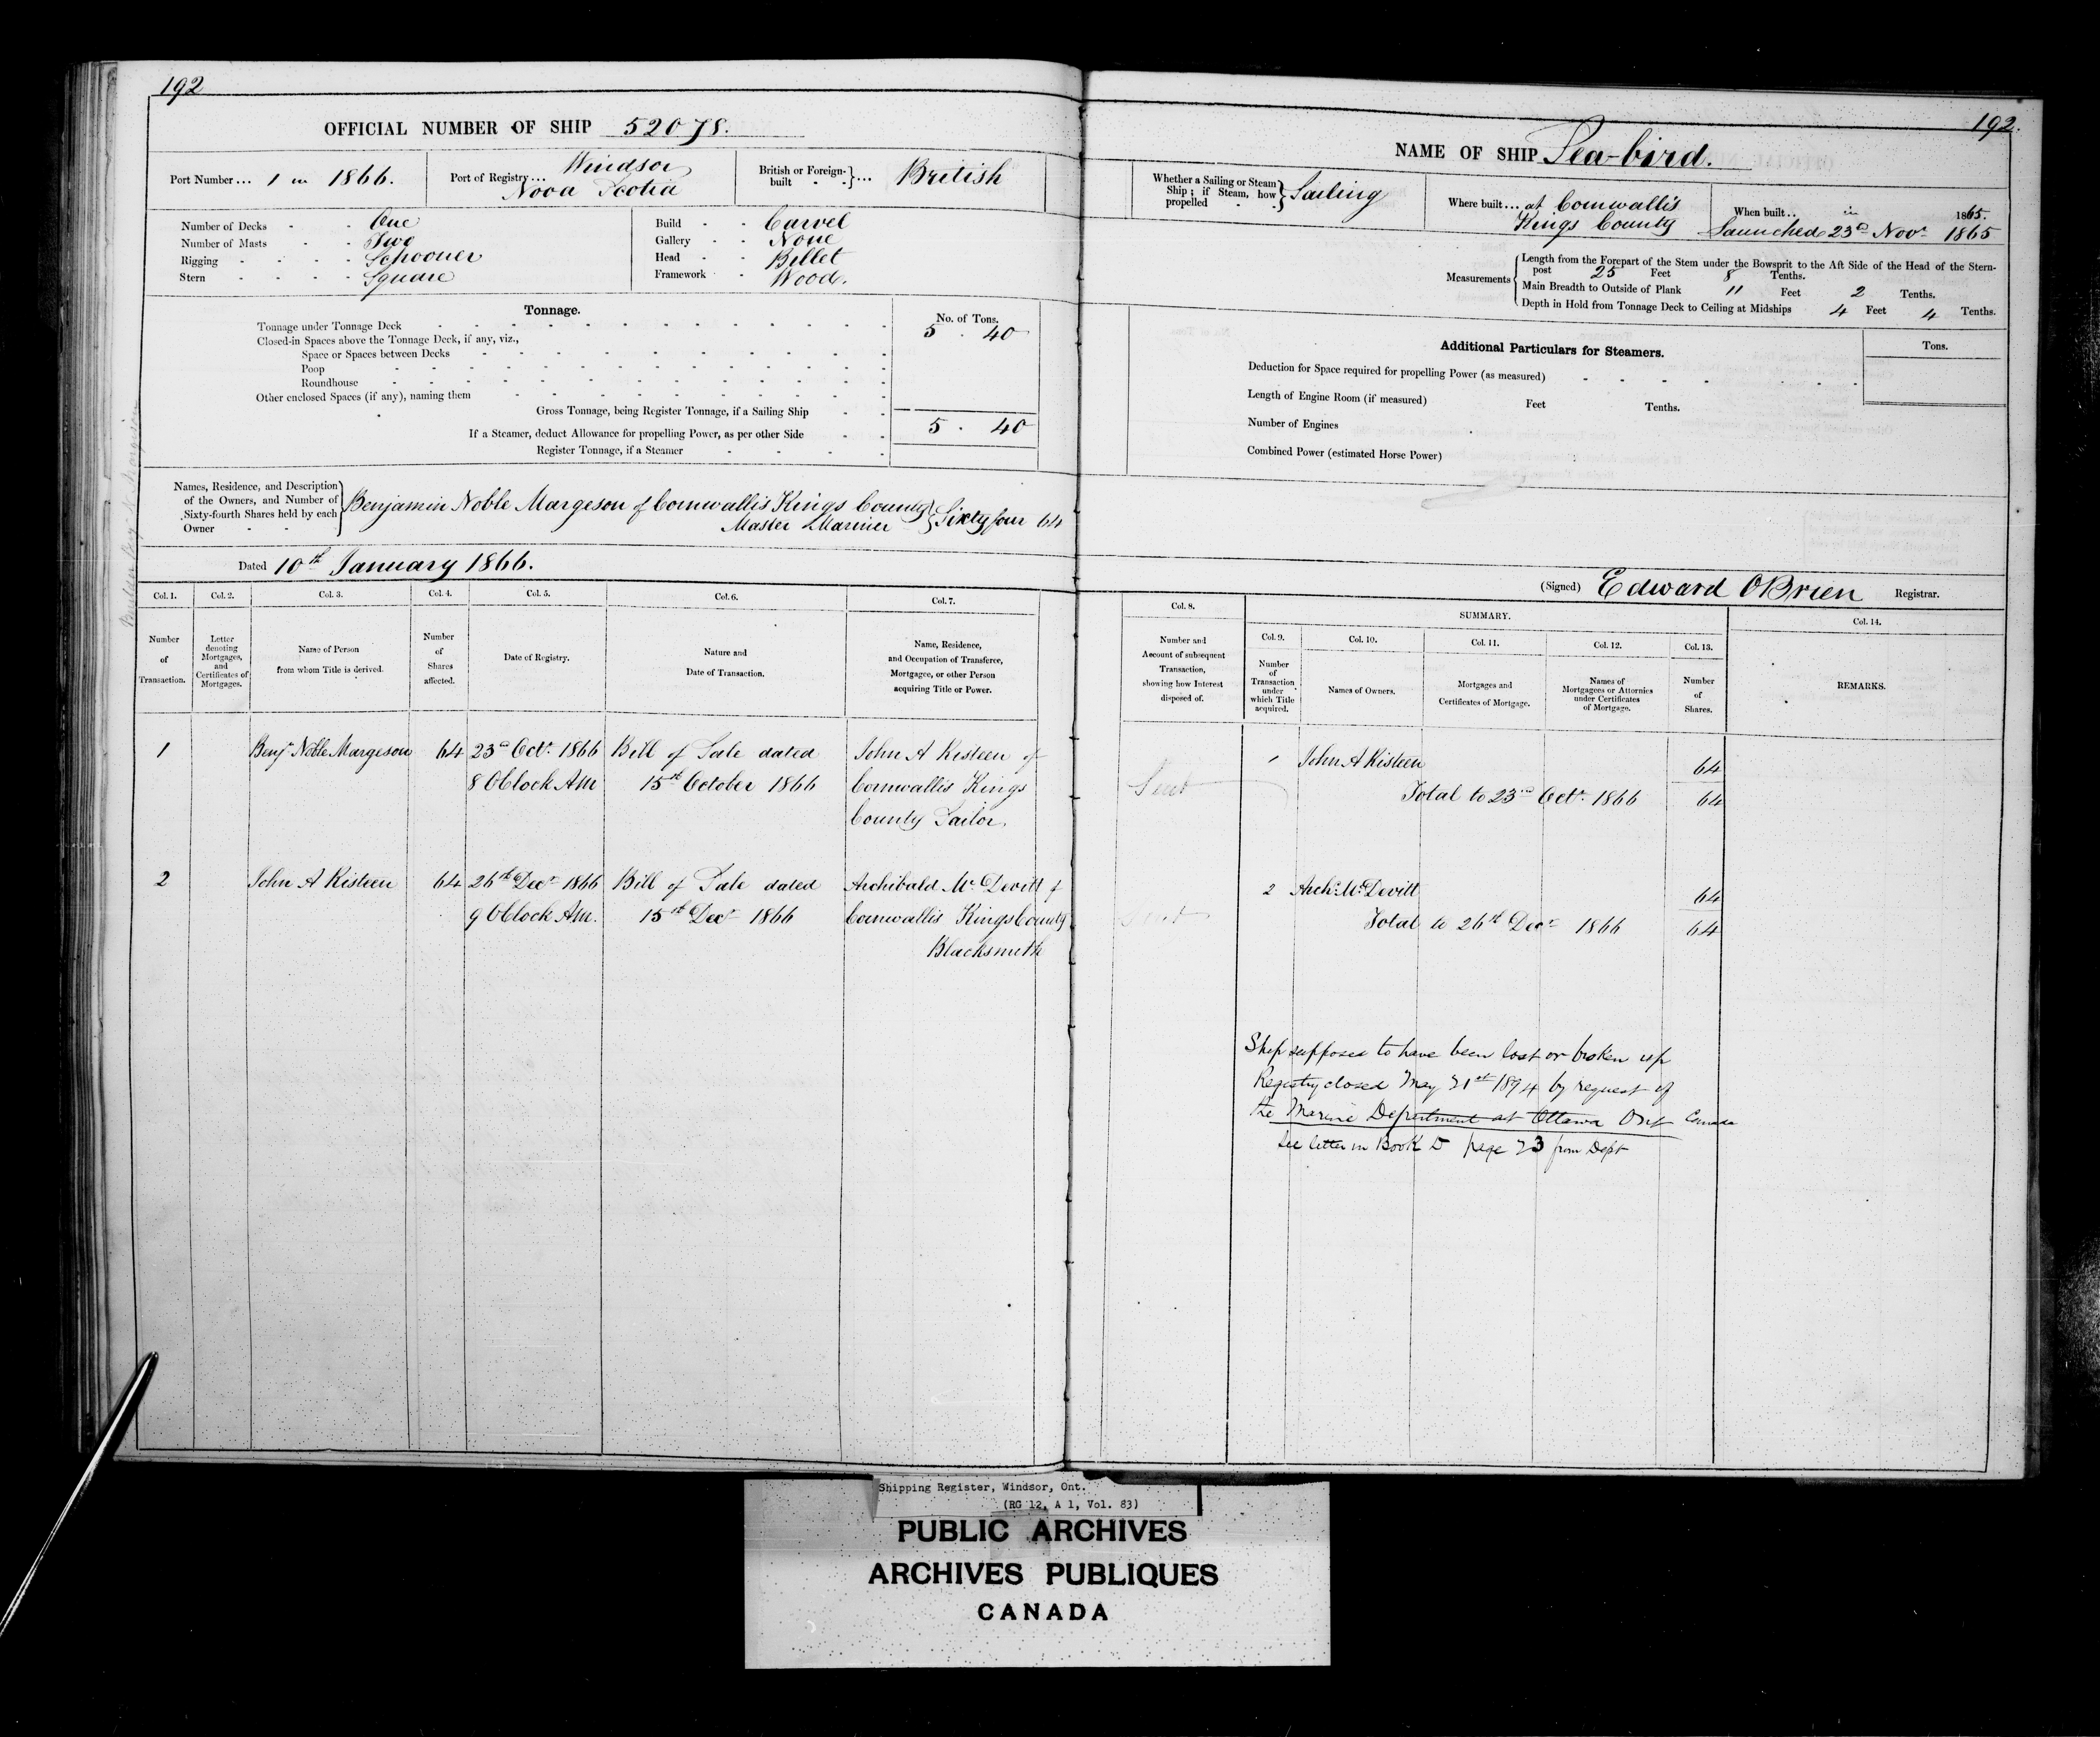 192
OFFICIAL NUMBER OF SHIP 52078.
Port Number ... 1 in 1866.
Port of Registry ... Windsor
Nova Scotia
British or Foreign-built } ... British
Number of Decks - - One
Number of Masts - - Two
Rigging - - - - Schooner
Stern - - - - Square
Build - - Carvel
Gallery - - None
Head - - Billet
Framework - Wood.
Tonnage.
No. of Tons.
Tonnage under Tonnage Deck 5 . 40
Closed-in Spaces above the Tonnage Deck, if any, viz.,
Space or Spaces between Decks
Poop
Roundhouse
Other enclosed Spaces (if any), naming them
Gross Tonnage, being Register Tonnage, if a Sailing Ship
5 . 40
If a Steamer, deduct Allowance for propelling Power, as per other Side
Register Tonnage, if a Steamer
Names, Residence, and Description
of the Owners, and Number of
Sixty-fourth Shares held by each
Owner - -
Benjamin Noble Margeson of Cornwallis Kings County
Master Mariner } Sixty four 64
Dated 10th January 1866.
Col. 1. Col. 2. Col. 3. Col. 4. Col. 5. Col. 6. Col. 7.
Number of Transaction.
Letter denoting Mortgages, and Certificates of Mortgages.
Name of Person from whom Title is derived.
Number of Shares affected.
Date of Registry.
Nature and Date of Transaction.
Name, Residence, and Occupation of Transferee, Mortgagee, or other Person acquiring Title or Power.
1 Benjn Noble Margeson 64 23rd Octr. 1866 Bill of Sale dated John A Kisteen of
8 OClock AM 15th October 1866 Cornwallis Kings
County Tailor.
2 John A Kisteen 64 26th Decr 1866 Bill of Sale dated Archibald Mc Devitt of
9 OClock AM. 15th Decr 1866 Cornwallis Kings County
Blacksmith
192.
NAME OF SHIP Sea-bird.
Whether a Sailing or Steam
Ship ; if Steam, how
propelled - } Sailing
Where built ... at Cornwallis
Kings County
When built .. in 1865.
Launched 23rd Novr 1865
Measurements
Length from the Forepart of the Stem under the Bowsprit to the Aft Side of the Head of the Stern-
post 25 Feet 8 Tenths.
Main Breadth to Outside of Plank 11 Feet 2 Tenths.
Depth in Hold from Tonnage Deck to Ceiling at Midships 4 Feet 4 Tenths.
Additional Particulars for Steamers.
Tons.
Deduction for Space required for propelling Power (as measured)
Length of Engine Room (if measured) Feet Tenths.
Number of Engines
Combined Power (estimated Horse Power)
(Signed) Edward OBrien Registrar.
Col. 8. SUMMARY. Col. 14.
Col. 9. Col. 10. Col. 11. Col. 12. Col. 13.
Number and Account of subsequent Transaction, showing how Interest disposed of.
Number of Transaction under which Title acquired.
Names of Owners.
Mortgages and Certificates of Mortgage.
Names of Mortgagees or Attornies under Certificates of Mortgage.
Number of Shares.
REMARKS.
1 John A Kisteen 64
Total to 23rd Octr. 1866 64
2 Archd. Mc Devitt 64
Total to 26th Decr 1866 64
Ship supposed to have been lost or broken up
Registry closed May 31st 1894 by request of
the Marine Department at Ottawa Ont Canada
See letter in Book D page 73 from Dept
Shipping Register, Windsor, Ont.
(RG 12, A 1, Vol. 83)
PUBLIC ARCHIVES
ARCHIVES PUBLIQUES
CANADA